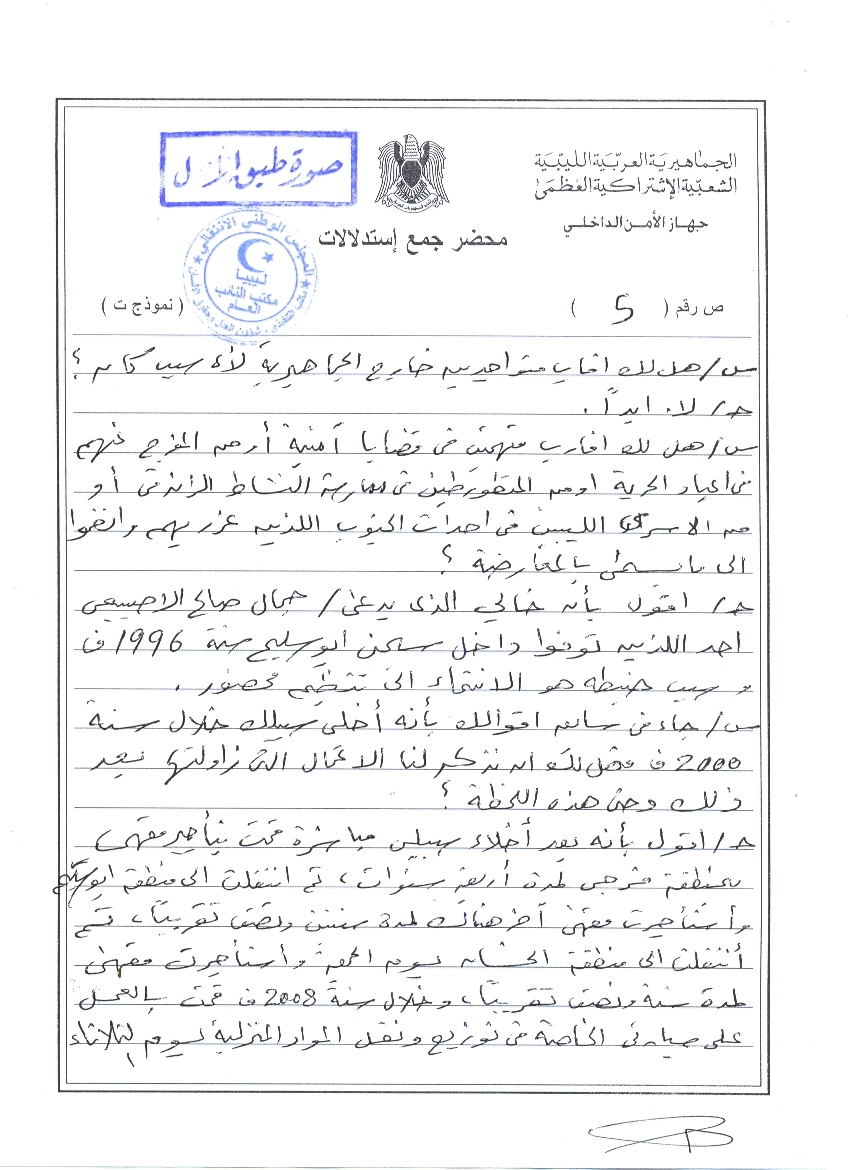 الجماهيرية العربية الليبية
الشعبية الإشتراكية العظمى
جهاز الأمن الداخلي
صورة طبق الأصل
المجلس الوطني الانتقالي
ليبيا
مكتب النائب
العام
محضر جمع إستدلالات
ص رقم ( 5 ) ( نموذج ت )
س/ هل لك اقارب متواجدين خارج الجماهيرية لأي سبب كان ؟
ج/ لا. ابداً.
س/ هل لك اقارب متهمين في قضايا أمنية أو من المفرج عنهم
في اعياد الحرية او من المتطورطين في ممارسة النشاط الزندقي أو
من الاسرى الليبين في احداث الجنوب اللذين غرر بهم وانضموا
الى ما يسمى بالمعارضة ؟
ج/ اقول بأن خالي الذي يدعى / جمال صالح الاصيبعي
احد اللذين توفوا داخل سجن أبوسليم سنة 1996 ف
و سبب ضبطه هو الانتماء الى تنظيم محضور .
س/ جاء في سابق اقوالك بأنه أخلى سبيلك خلال سنة
2000 ف فهل لك ان تذكر لنا الاعمال التي زاولتها بعد
ذلك وحتى هذه اللحظة ؟
ج/ اقول بأنه بعد أخلاء سبيلي مباشرة قمت بتأجير مقهى
بمنطقة قرجي لمدة أربعة سنوات ، ثم انتقلت الى منطقة ابوسليم
وأستأجرت مقهى آخر هناك لمدة سنتين ونصف تقريباً ، ثم
أنتقلت الى منطقة الحشان يوم الجمعة وأستأجرت مقهى
لمدة سنة ونصف تقريباً ، وخلال سنة 2008 ف قمت بالعمل
على سيارتي الخاصة في توزيع ونقل المواد المنزلية بسوم الثلاثاء